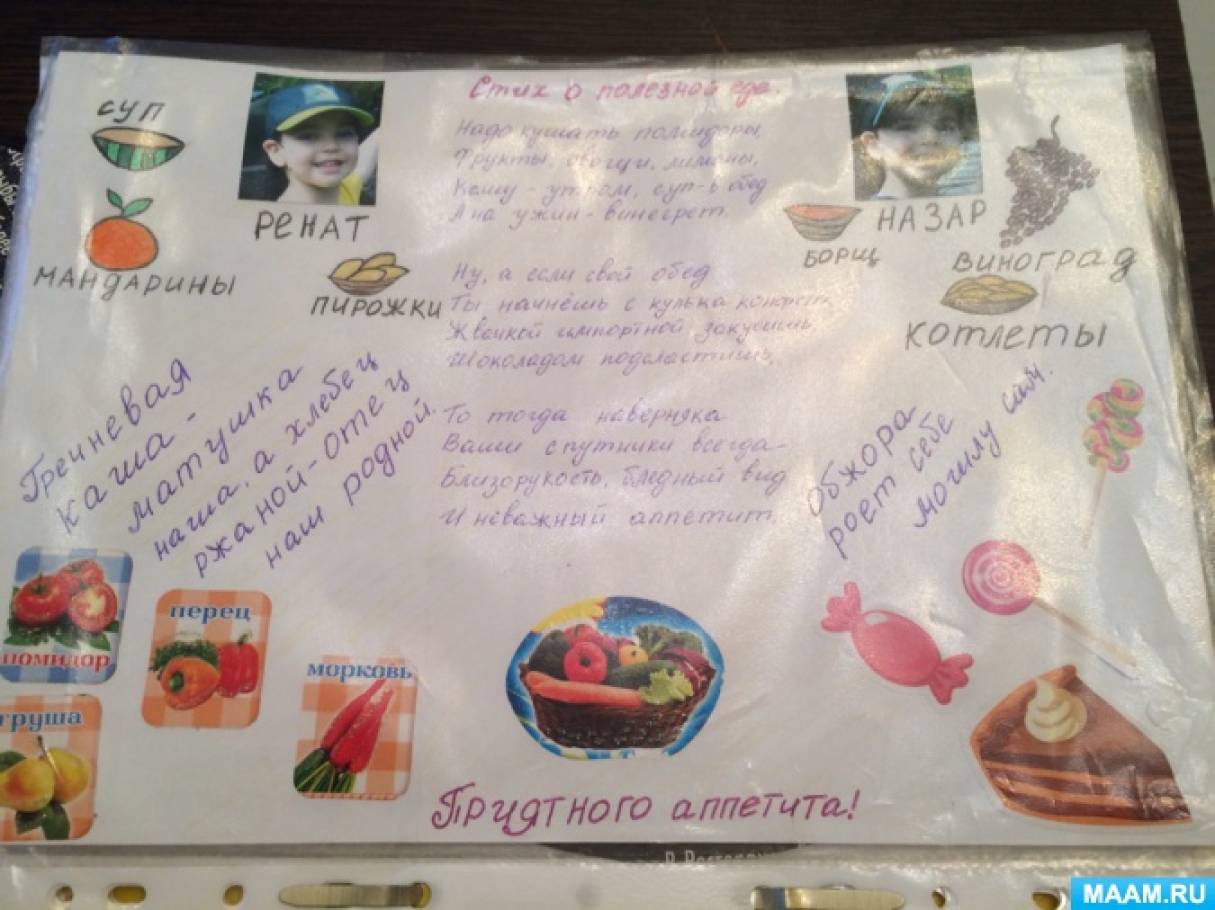 Стих о полезной еде.
Надо кушать помидоры,
Фрукты, овощи, лимоны,
Кашу - утром, суп - в обед
А на ужин - винегрет.
Ну, а если свой обед
Ты начнёшь с кулька конфет,
Жвачкой импортной закусишь,
Шоколадом подсластишь,
То тогда наверняка
Ваши спутники всегда -
Близорукость, бледный вид
И неважный аппетит.
суп
МАНДАРИНЫ
РЕНАТ
ПИРОЖКИ
НАЗАР
БОРЩ
ВИНОГРАД
КОТЛЕТЫ
Гречневая
каша -
матушка
наша, а хлебец
ржаной - отец
наш родной.
Обжора
роет себе
могилу сам.
помидор
перец
морковь
груша
Приятного аппетита!
MAAM.RU